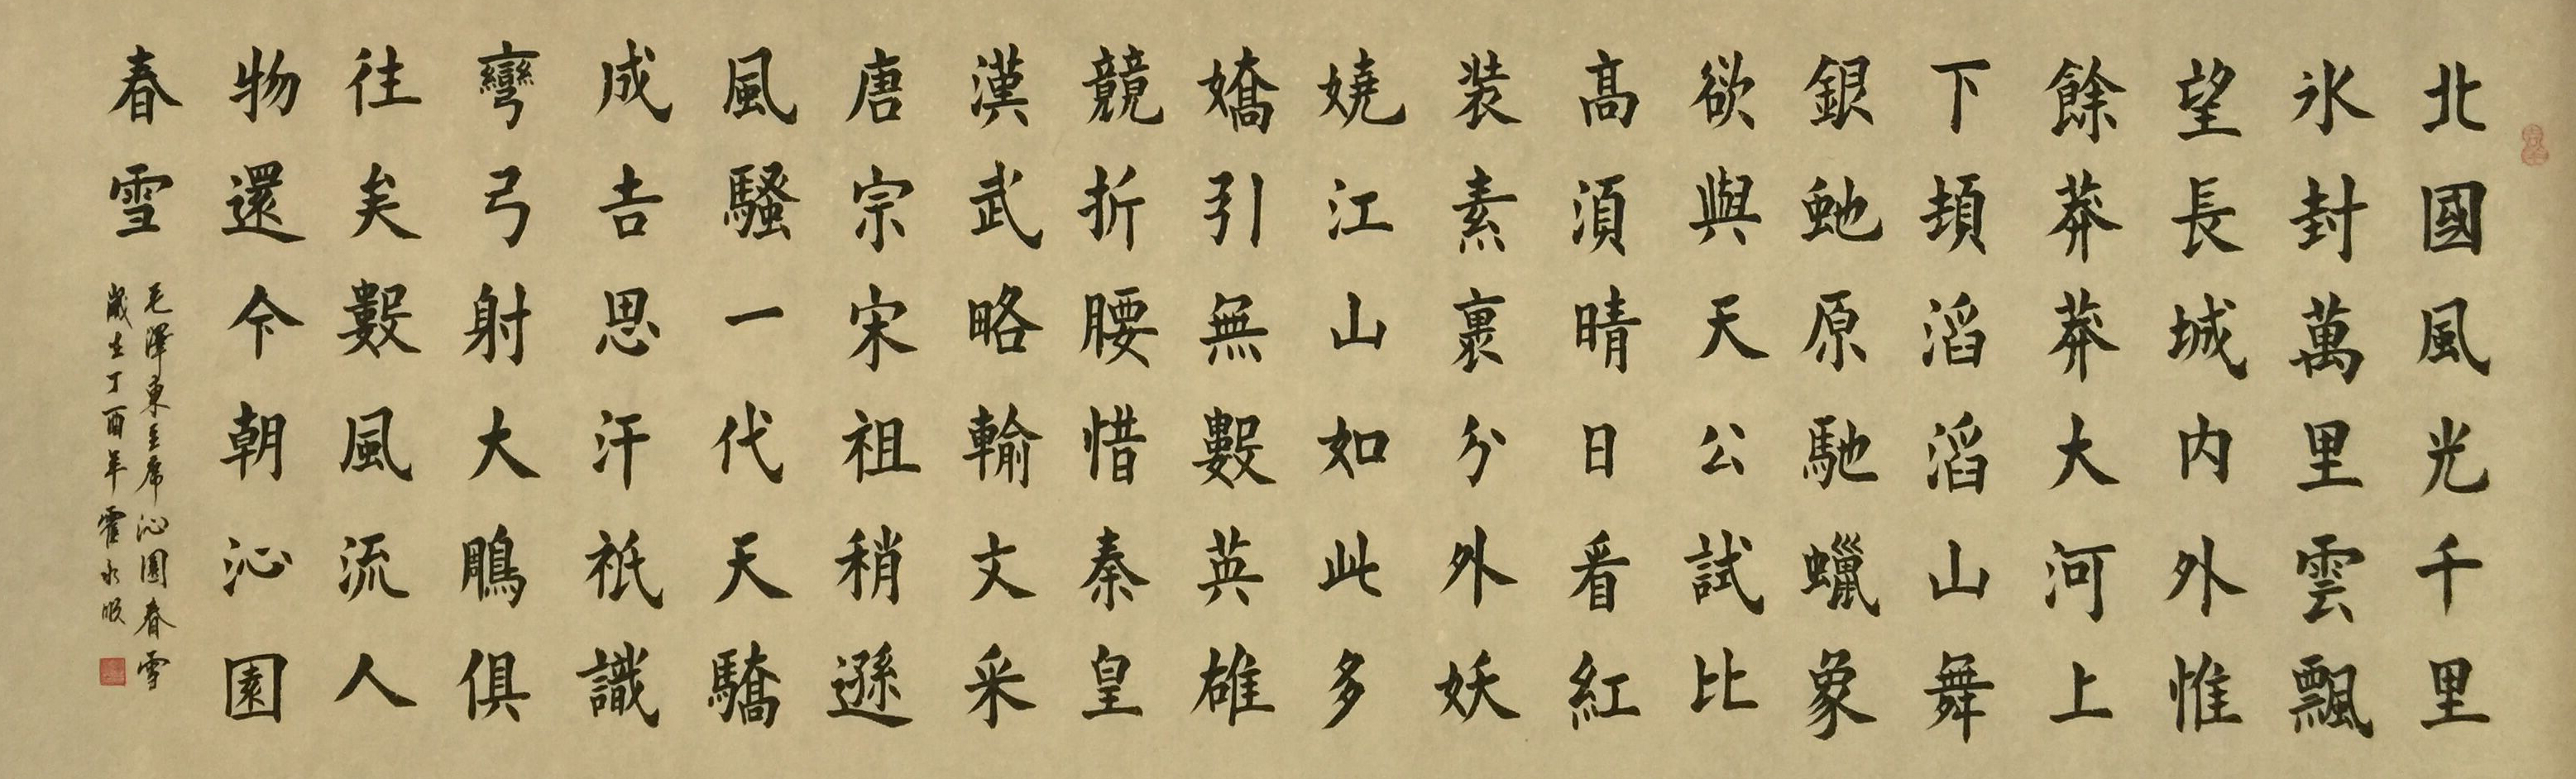 北國風光千里
氷封萬里雲飄
望長城内外惟
餘莽莽大河上
下頓滔滔山舞
銀虵原馳蠟象
欲與天公試比
高須晴日看紅
装素裹分外妖
嬈江山如此多
嬌引無數英雄
競折腰惜秦皇
漢武略輸文采
唐宗宋祖稍遜
風騷一代天驕
成吉思汗祇識
彎弓射大鵰俱
往矣數風流人
物還今朝沁園
春雪
毛澤東主席沁園春雪
歲在丁酉年霍永